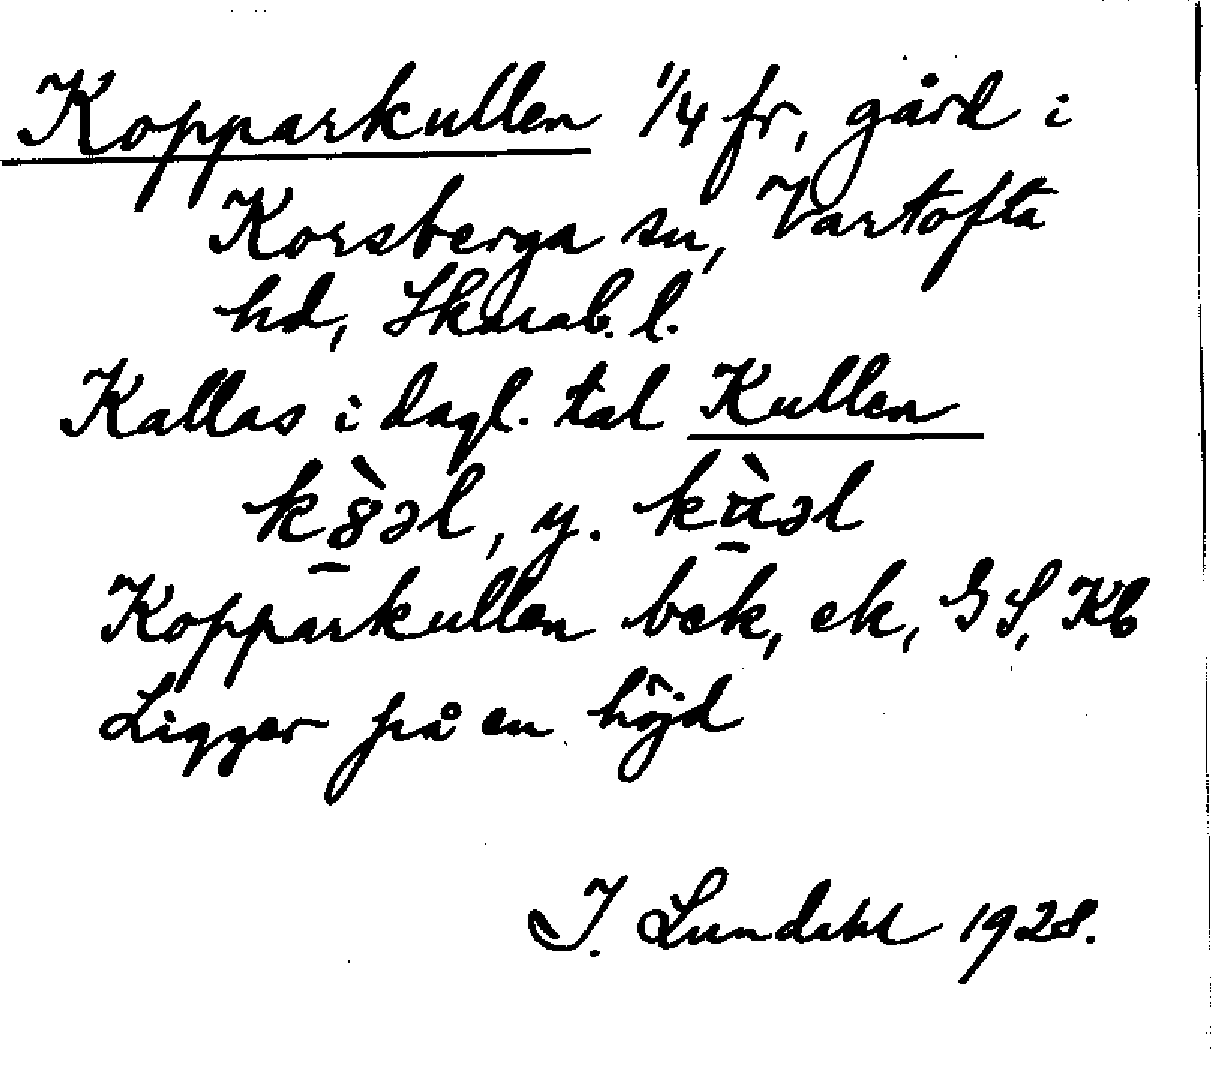 Kopparkullen 1/4 fr, gård i
Korsberga sn, Vartofta
hd, Skarab. l.
Kallas i dagl. tal Kullen
k8̠̀əl, y. kὰ̠əl
Kopparkullen bek, ek, GS, Kb
Ligger på en höjd
I. Lundahl 1928.